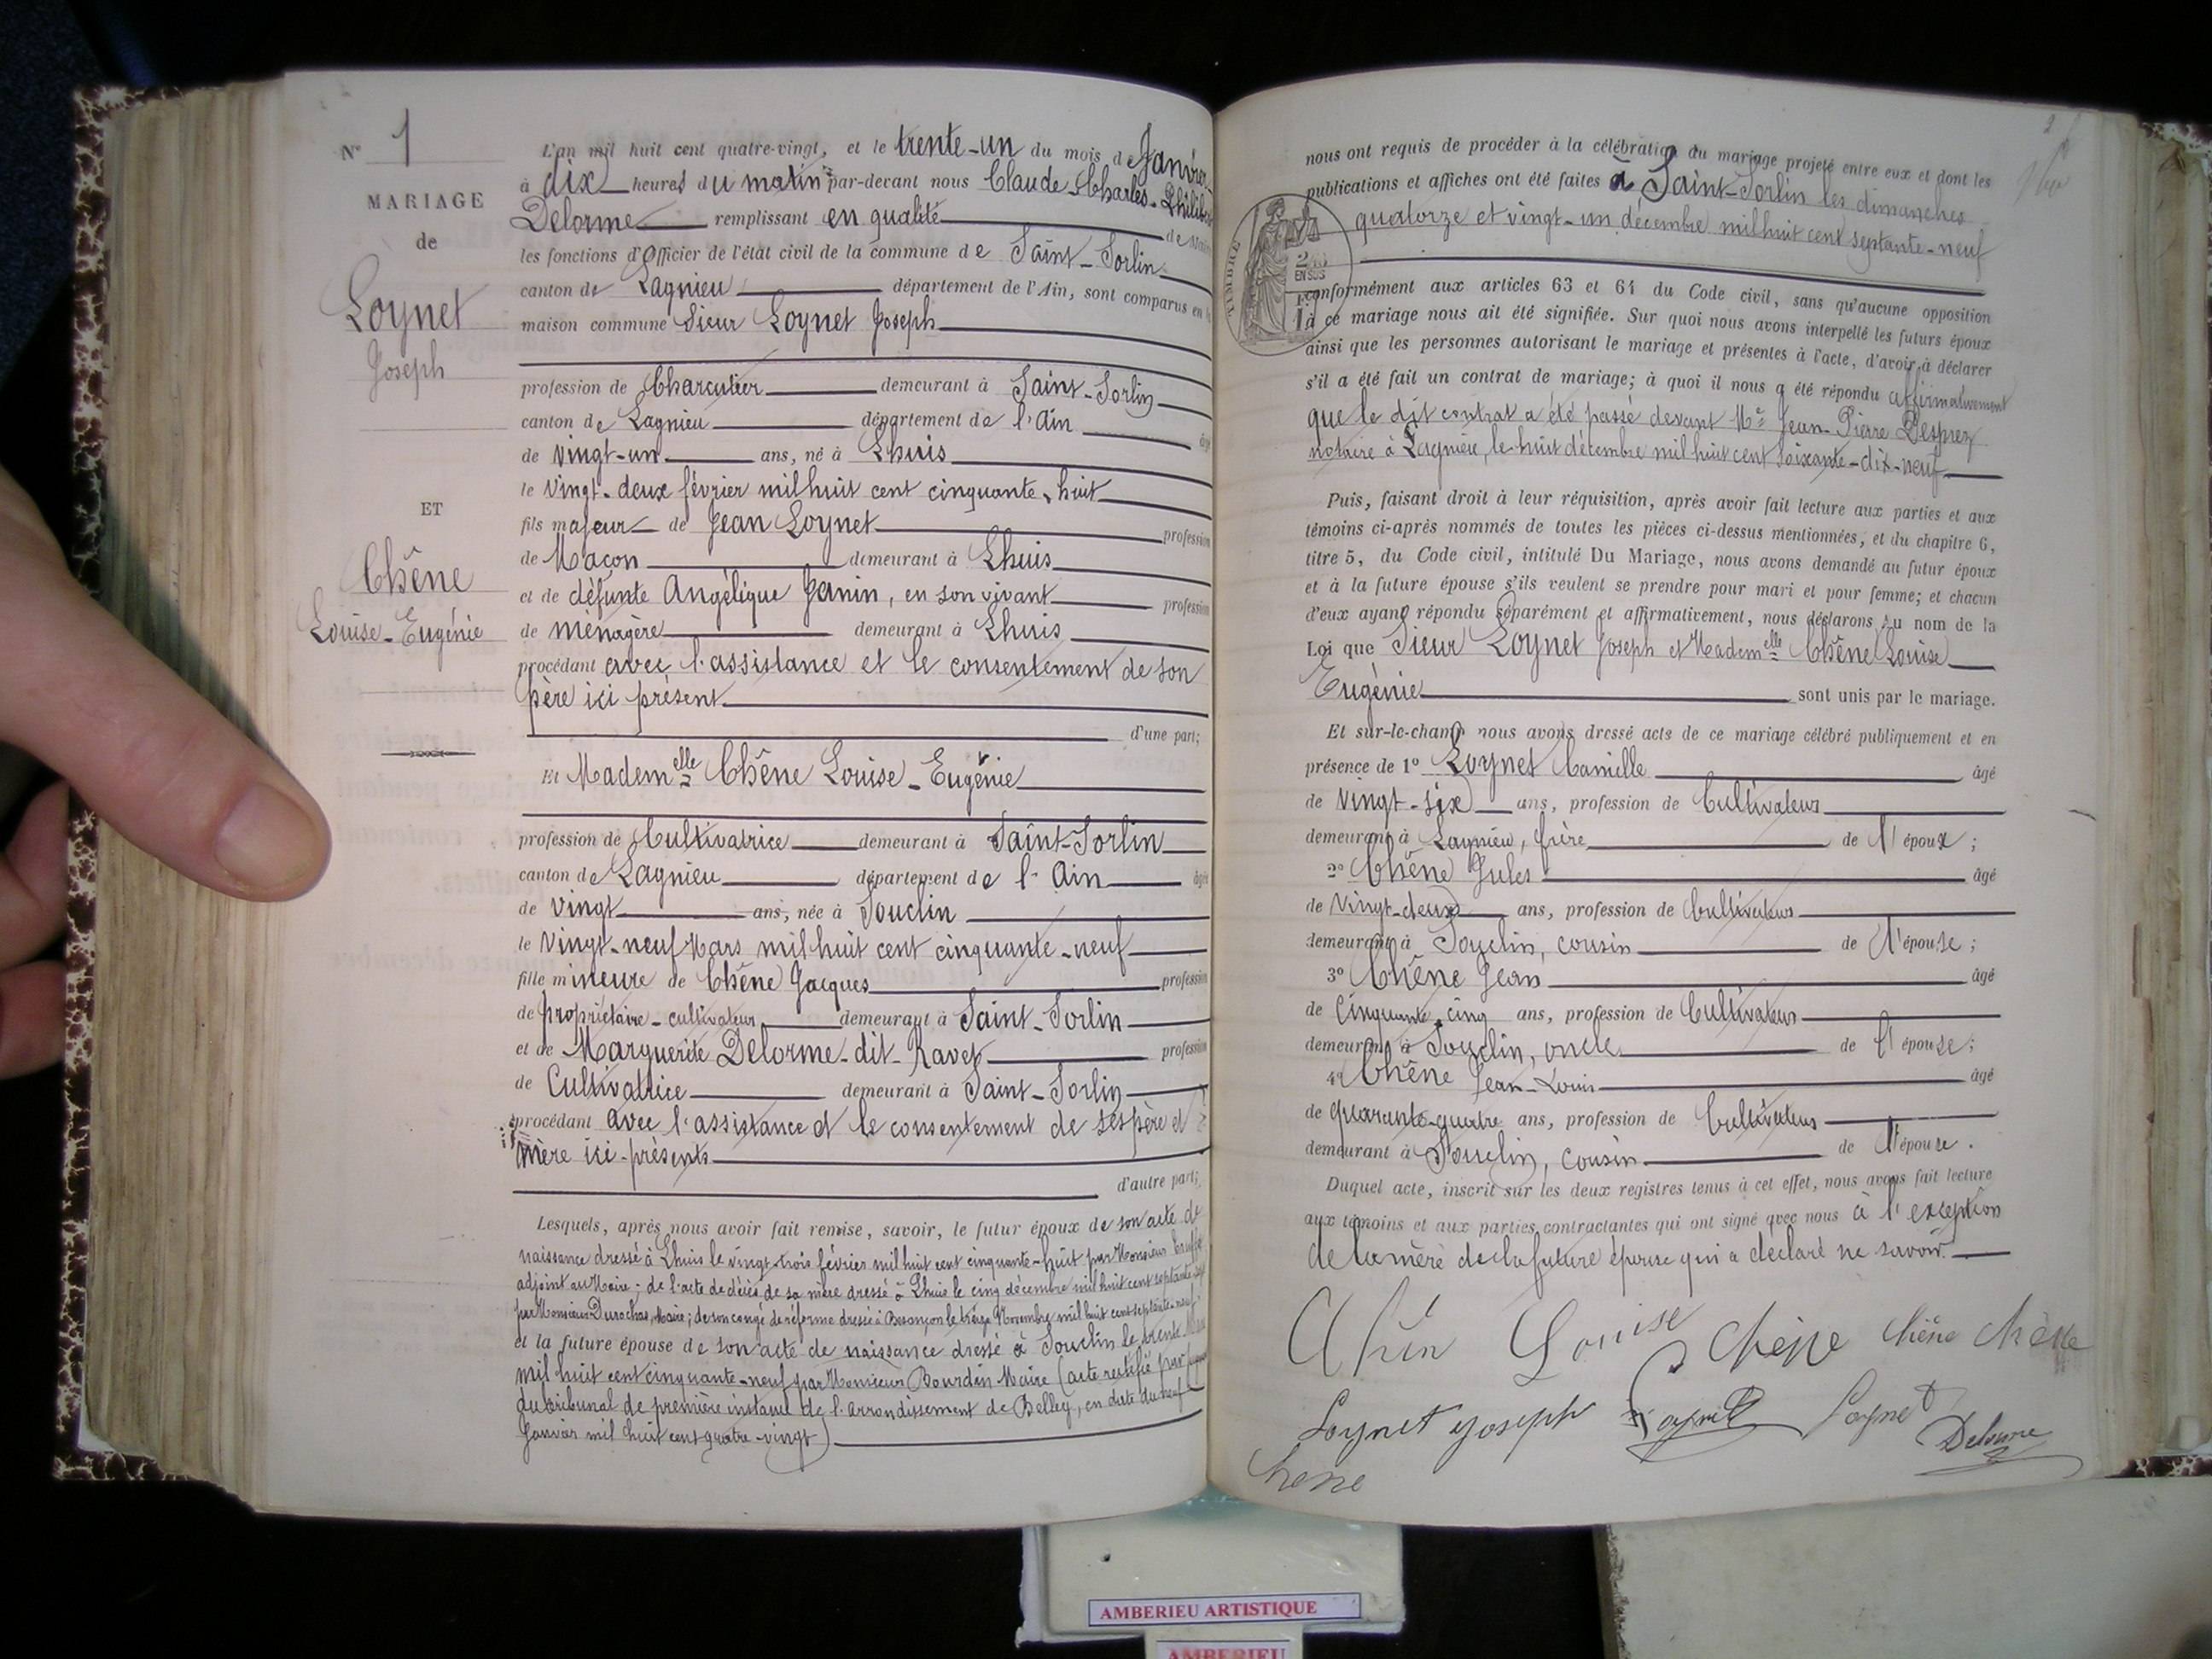 N° 1
MARIAGE
de
Loynet
Joseph
ET
Chêne
Louise-Eugénie
L'an mil huit cent quatre-vingt, et le trente-un du mois de Janvier
à dix heures du matin par-devant nous Claude Charles-Philibert
Delorme remplissant en qualité de Maire
les fonctions d'Officier de l'état civil de la commune de Saint-Sorlin
canton de Lagnieu département de l'Ain, sont comparus en la
maison commune Sieur Loynet Joseph
profession de Charcutier demeurant à Saint-Sorlin
canton de Lagnieu département de l'Ain âgé
de vingt-un ans, né à Lhuis
le vingt-deux février mil huit cent cinquante-huit
fils majeur de Jean Loynet profession
de Maçon demeurant à Lhuis
et de défunte Angélique Janin, en son vivant profession
de ménagère demeurant à Lhuis
procédant avec l'assistance et le consentement de son
père ici présent
d'une part;
Et Madem elle Chêne Louise-Eugénie
profession de Cultivatrice demeurant à Saint-Sorlin
canton de Lagnieu département de l'Ain âgée
de vingt ans, née à Souclin
le vingt-neuf Mars mil huit cent cinquante-neuf
fille mineure de Chêne Jacques profession
de propriétaire-cultivateur demeurant à Saint-Sorlin
et de Marguerite Delorme-dit-Ravet profession
de Cultivatrice demeurant à Saint-Sorlin
procédant avec l'assistance et le consentement de ses père et
mère ici-présents
d'autre part;
Lesquels, après nous avoir fait remise, savoir, le futur époux de son acte de
naissance dressé à Lhuis le vingt-trois février mil huit cent cinquante-huit par Monsieur
adjoint au Maire; de l'acte de décès de sa mère dressé à Lhuis le cinq décembre mil huit cent septante
par Monsieur Durochas, Maire; de son congé de réforme dressé à Besançon le treize Novembre mil huit cent septante-neuf
et la future épouse de son acte de naissance dressé à Souclin le trente Mars
mil huit cent cinquante-neuf par Monsieur Bourdin Maire (acte rectifié par jugement
du tribunal de première instance de l'arrondissement de Belley, en date du neuf
Janvier mil huit cent quatre-vingt)
2
nous ont requis de procéder à la célébration du mariage projeté entre eux et dont les
publications et affiches ont été faites à Saint-Sorlin les dimanches
quatorze et vingt-un décembre mil huit cent septante-neuf
TIMBRE
EN SUS
conformément aux articles 63 et 64 du Code civil, sans qu'aucune opposition
à ce mariage nous ait été signifiée. Sur quoi nous avons interpellé les futurs époux
ainsi que les personnes autorisant le mariage et présentes à l'acte, d'avoir à déclarer
s'il a été fait un contrat de mariage; à quoi il nous a été répondu affirmativement
que le dit contrat a été passé devant Me Jean-Pierre Desprez
notaire à Lagnieu, le huit décembre mil huit cent soixante-dix-neuf
Puis, faisant droit à leur réquisition, après avoir fait lecture aux parties et aux
témoins ci-après nommés de toutes les pièces ci-dessus mentionnées, et du chapitre 6,
titre 5, du Code civil, intitulé Du Mariage, nous avons demandé au futur époux
et à la future épouse s'ils veulent se prendre pour mari et pour femme; et chacun
d'eux ayant répondu séparément et affirmativement, nous déclarons au nom de la
Loi que Sieur Loynet Joseph et Madem elle Chêne Louise
Eugénie sont unis par le mariage.
Et sur-le-champ nous avons dressé acte de ce mariage célébré publiquement et en
présence de 1° Loynet Camille âgé
de vingt-six ans, profession de Cultivateur
demeurant à Lagnieu, frère de l'époux;
2° Chêne Jules âgé
de vingt-deux ans, profession de Cultivateur
demeurant à Souclin, cousin de l'épouse;
3° Chêne Jean âgé
de cinquante-cinq ans, profession de Cultivateur
demeurant à Souclin, oncle de l'épouse;
4° Chêne Jean-Louis âgé
de quarante-quatre ans, profession de Cultivateur
demeurant à Souclin, cousin de l'épouse.
Duquel acte, inscrit sur les deux registres tenus à cet effet, nous avons fait lecture
aux témoins et aux parties contractantes qui ont signé avec nous à l'exception
de la mère de la future épouse qui a déclaré ne savoir.
Chên Louise Chêne Chêne Chêne
Loynet Joseph Loynet Loynet
Delorme
Chene
AMBERIEU ARTISTIQUE
AMBERIEU